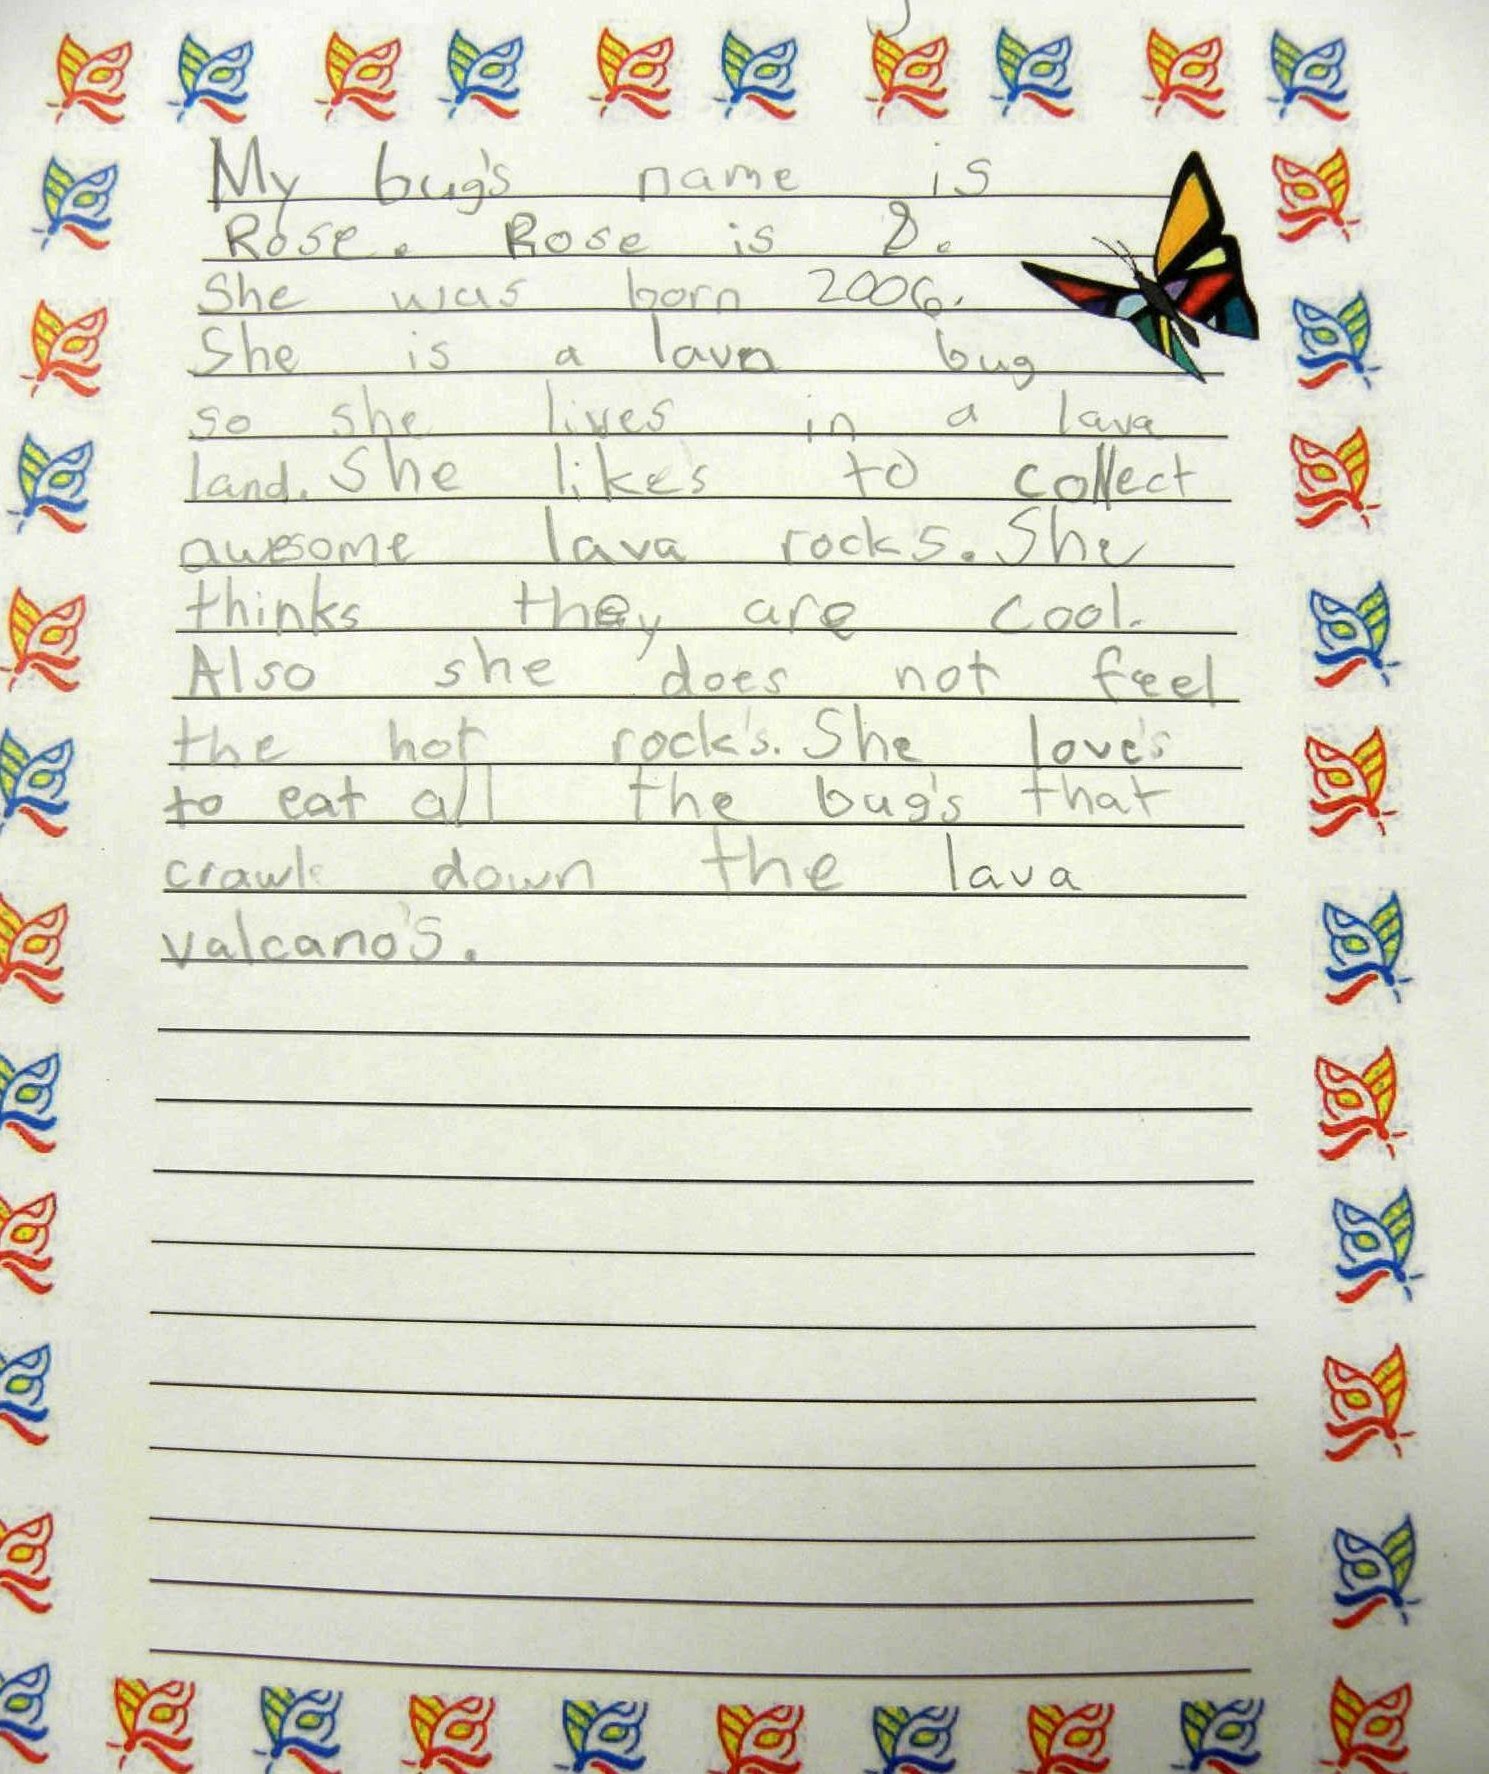 My bug's name is
Rose. Rose is 8.
She was born 2006.
She is a lava bug
so she lives in a lava
land. She likes to collect
awesome lava rocks. She
thinks they are cool.
Also she does not feel
the hot rock's. She love's
to eat all the bug's that
crawl down the lava
valcano's.